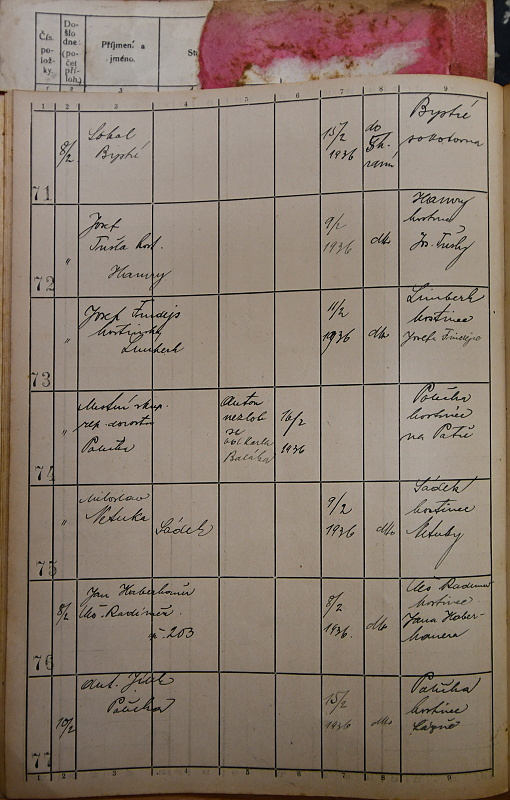 Čís. po- lož- ky.
Do- šlo dne: (po- čet pří- loh.)
Příjmení a jméno.
1 2 3 4 5 6 7 8 9
71 8/2 Sokol Bystré 15/2 1936 do 5h. ranní Bystré sokolovna
72 " Josef Tušla host. Hamry 9/2 1936 dto Hamry hostinec Jos. Tušly
73 " Josef hostinský Limberk 11/2 1936 dto Limberk hostinec Josefa
74 " Místní skup. rep. dorostu Polička Anton se Karla 16/2 1936 Polička hostinec na
75 " Miloslav Netuka Sádek 9/2 1936 dto Sádek hostinec Netuky
76 8/2 Jan Haberhauer Radiměř čp. 203 8/2 1936. dto Radiměř hostinec Jana Haber- hauera
77 10/2 Ant. Polička 15/2 1936 dto Polička hostinec
1 2 3 4 5 6 7 8 9